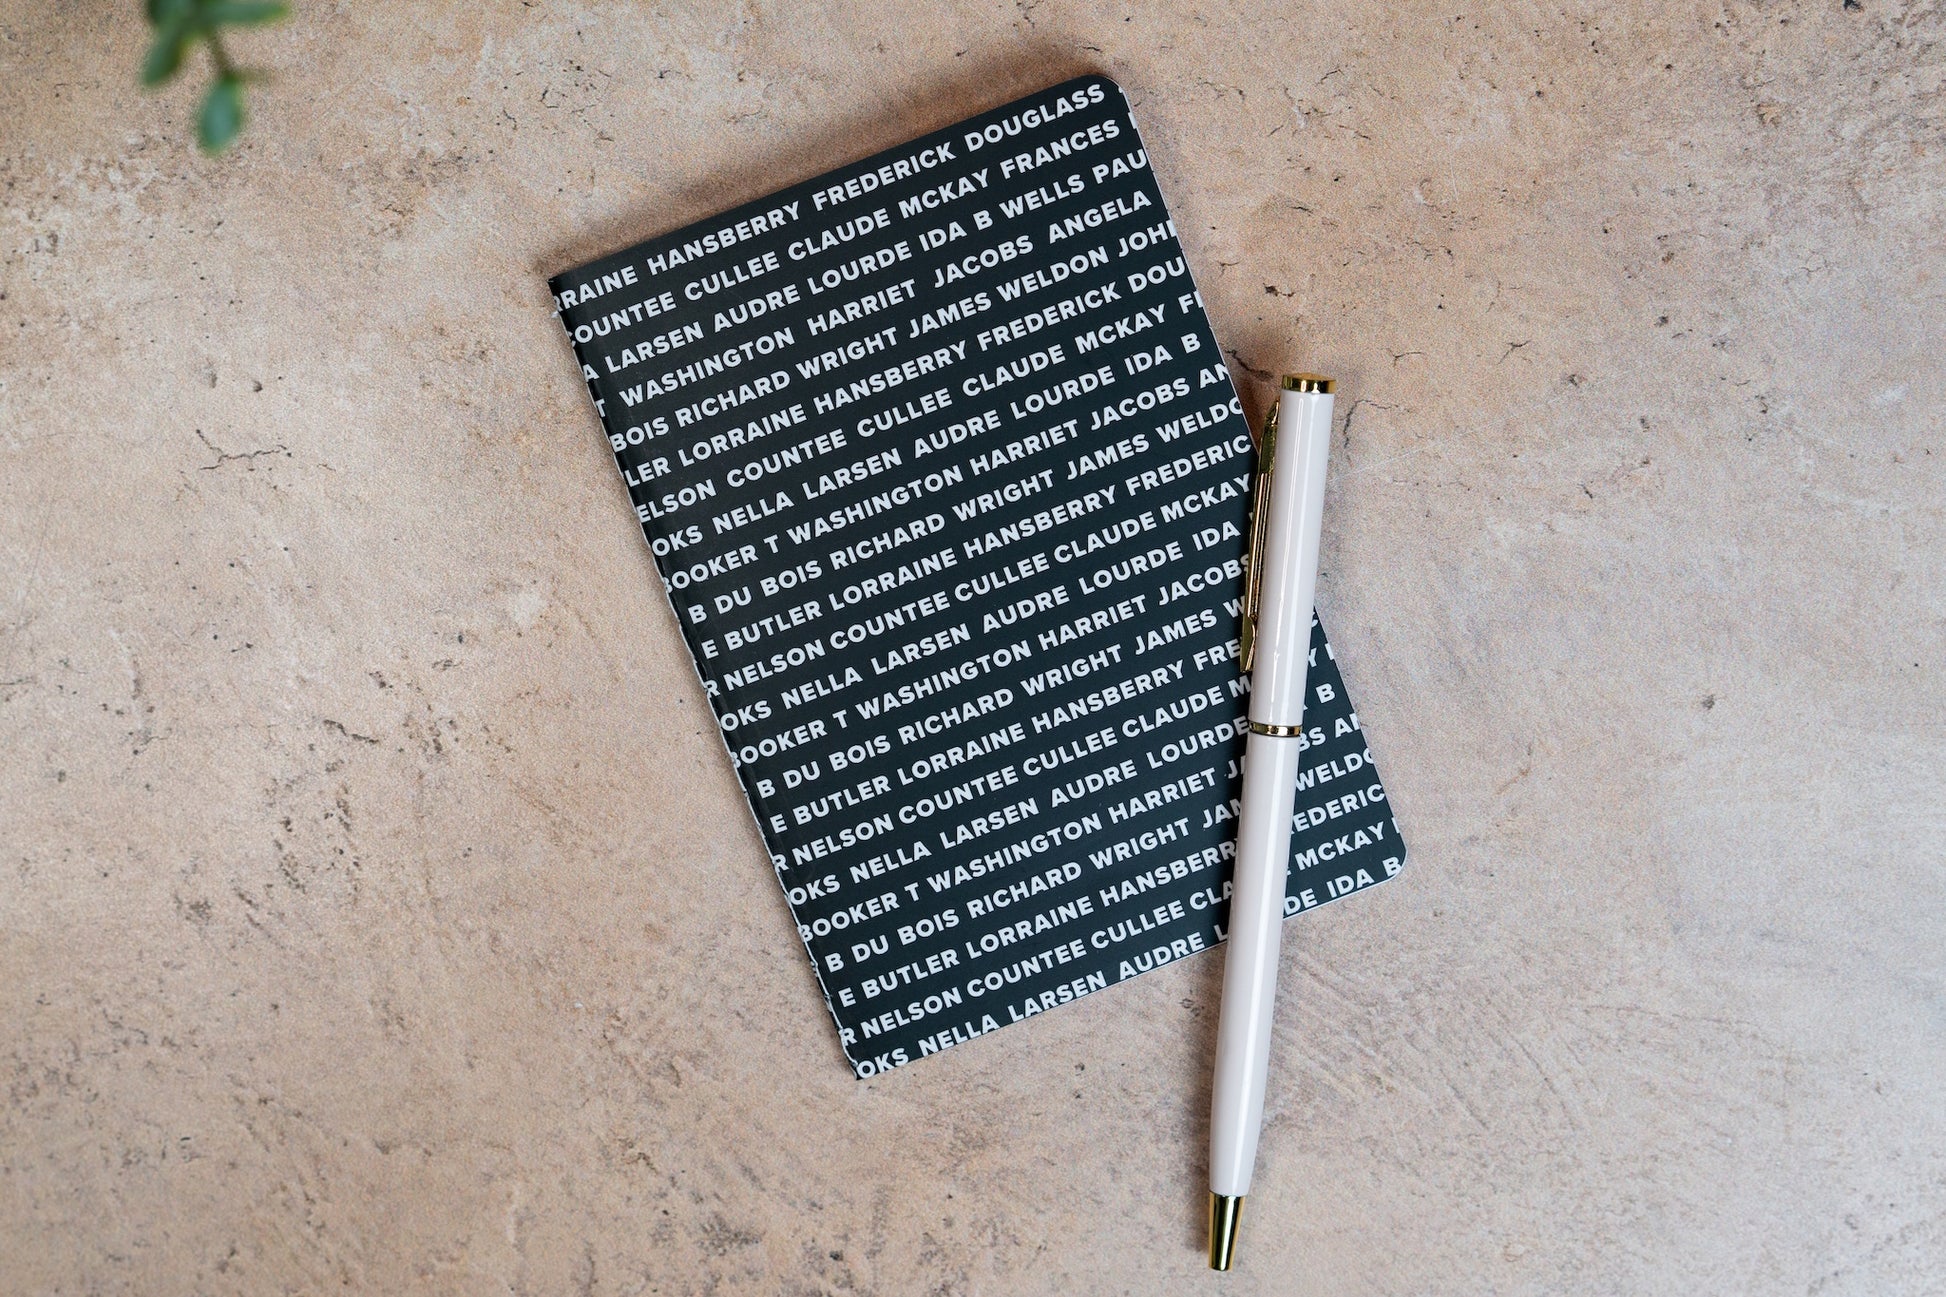 RRAINE HANSBERRY FREDERICK DOUGLASS
COUNTEE CULLEE CLAUDE MCKAY FRANCES
A LARSEN AUDRE LOURDE IDA B WELLS PAU
T WASHINGTON HARRIET JACOBS ANGELA
BOIS RICHARD WRIGHT JAMES WELDON JOH
LER LORRAINE HANSBERRY FREDERICK DOU
ELSON COUNTEE CULLEE CLAUDE MCKAY F
OKS NELLA LARSEN AUDRE LOURDE IDA B
BOOKER T WASHINGTON HARRIET JACOBS AN
B DU BOIS RICHARD WRIGHT JAMES WELDO
E BUTLER LORRAINE HANSBERRY FREDERIC
R NELSON COUNTEE CULLEE CLAUDE MCKAY
OKS NELLA LARSEN AUDRE LOURDE IDA B
BOOKER T WASHINGTON HARRIET JACOBS AN
B DU BOIS RICHARD WRIGHT JAMES WELDO
E BUTLER LORRAINE HANSBERRY FRE EDERIC
R NELSON COUNTEE CULLEE CLAUDE M MCKAY
OKS NELLA LARSEN AUDRE LOURDE DE IDA B
BOOKER T WASHINGTON HARRIET J
B DU BOIS RICHARD WRIGHT JAM
E BUTLER LORRAINE HANSBERR
R NELSON COUNTEE CULLEE CLA
OKS NELLA LARSEN AUDRE L